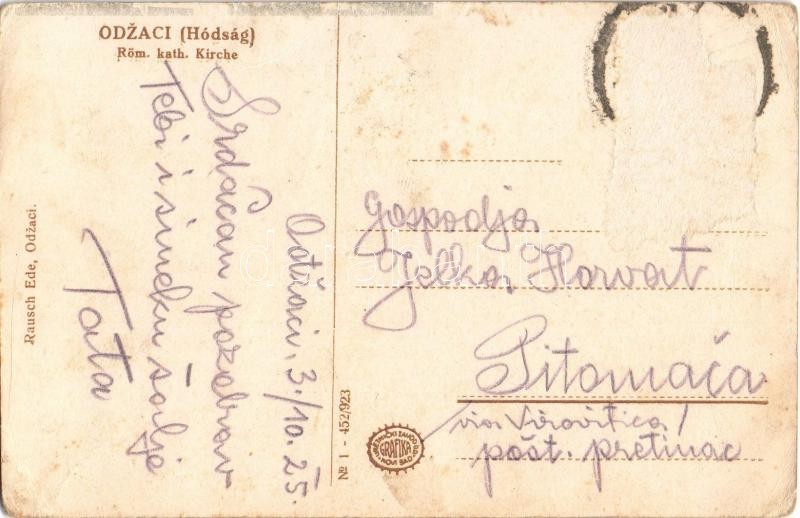 ODŽACI (Hódság)
Röm. kath. Kirche
Odžaci, 3./10. 25.
Srdačan pozdrav
Tebi i sineku šalje
Tata
Rausch Ede, Odžaci.
№ 1 - 452/923
GRAFIKA
NOVI SAD
Gospodja
Jelka Horvat
Pitomača
via Virovitica/
pošt. pretinac